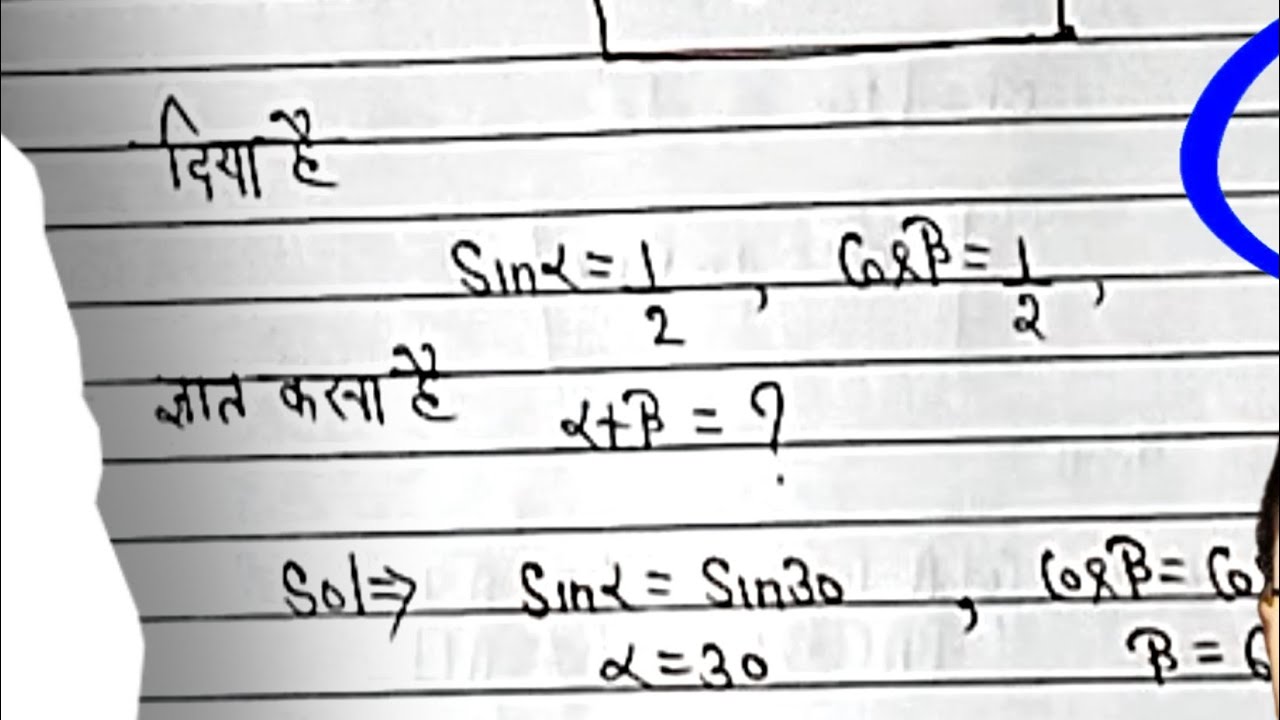 दिया है
Sinα = 1/2 , Cosβ = 1/2 ,
ज्ञात करना है α+β = ?
Sol⇒ Sinα = Sin30 , Cosβ = Co
α = 30 β = 6